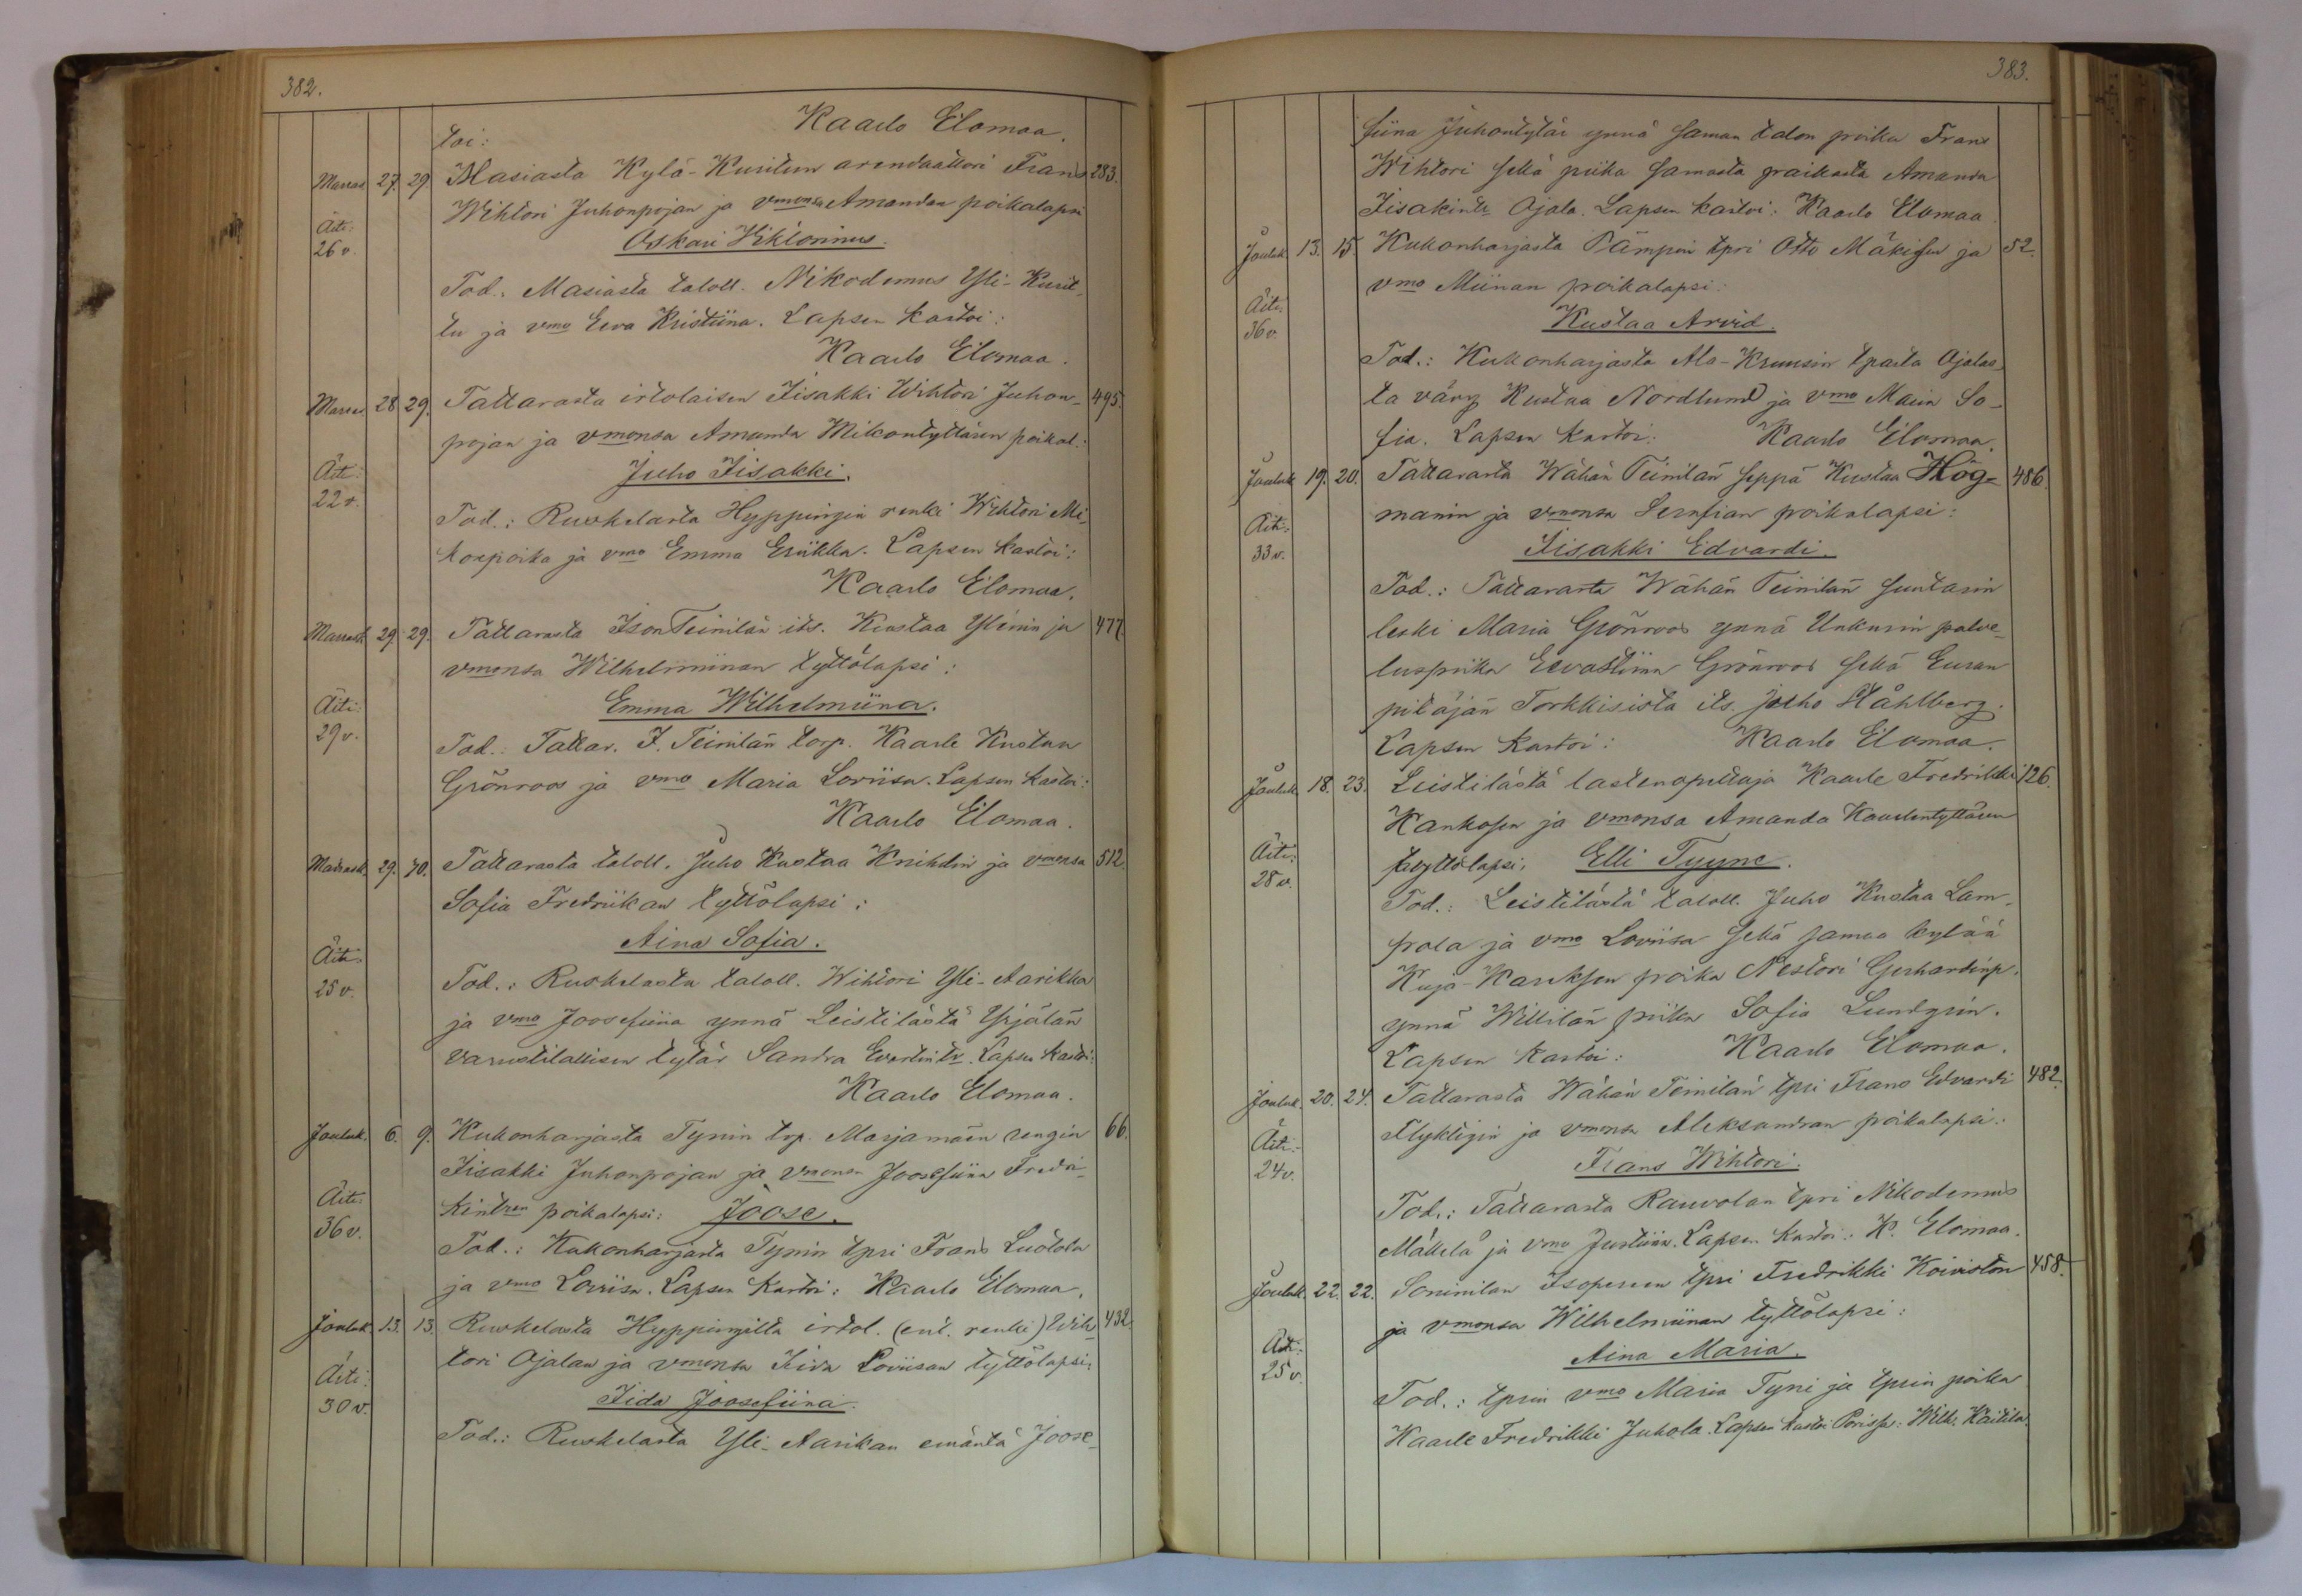 382.
toi: Kaarlo Elomaa.
Marras. 27. 29. Masiasta Kylä-Kuritun arendaattori Frans 283.
Wihtori Juhonpojan ja vmonsa Amandan poikalapsi
Äiti: 26 v. Oskari Wihtorinus.
Tod.: Masiasta taloll. Nikodemus Yli-Kurit-
tu ja vmo Eeva Kristiina. Lapsen kastoi:
Kaarlo Elomaa.
Marras. 28. 29. Tattarasta irtolaisen Iisakki Wihtori Juhon- 495.
pojan ja vmonsa Amanda Mikontyttären poikal.:
Äiti: 22 v. Juho Iisakki.
Tod.: Ruskelasta Hyppingin renki Wihtori Mi-
konpoika ja vmo Emma Eriikka. Lapsen kastoi:
Kaarlo Elomaa.
Marrask. 29. 29. Tattarasta Ison Teinilän its. Kustaa Ylinin ja 477.
vmonsa Wilhelmiinan tyttölapsi:
Äiti: 29 v. Emma Wilhelmiina.
Tod.: Tattar. I. Teinilän torp. Kaarle Kustaa
Grönroos ja vmo Maria Loviisa. Lapsen kastoi:
Kaarlo Elomaa.
Marrask. 29. 30. Tattarasta taloll. Juho Kustaa Knihdin ja vmonsa 512.
Sofia Fredriikan tyttölapsi:
Äiti: 25 v. Aina Sofia.
Tod.: Ruskelasta taloll. Wihtori Yli-Aarikka
ja vmo Joosefiina ynnä Leistilästä Yrjälän
varustilallisen tytär Sandra Evertintr. Lapsen kastoi:
Kaarlo Elomaa.
Jouluk. 6. 9. Kukonharjasta Tynin trp. Marjamäen rengin 66.
Iisakki Juhonpojan ja vmonsa Joosefiina Fredri-
Äiti: 36 v. kintren poikalapsi: Joose.
Tod.: Kukonharjasta Tynin tpri Frans Luotola
ja vmo Loviisa. Lapsen kastoi: Kaarlo Elomaa.
Jouluk. 13. 13. Ruskelasta Hyppingiltä irtol. (ent. renki) Wih- 432.
tori Ojalan ja vmonsa Iida Loviisan tyttölapsi:
Äiti: 30 v. Iida Joosefiina.
Tod.: Ruskelasta Yli-Aarikan emäntä Joose-
383.
fiina Juhontytär ynnä saman talon poika Frans
Wihtori sekä piika samasta paikasta Amanda
Iisakintr Ojala. Lapsen kastoi: Kaarlo Elomaa.
Jouluk. 13. 15. Kukonharjasta Pämpin tpri Otto Mäkisen ja 52.
vmo Miinan poikalapsi:
Äiti: 36 v. Kustaa Arvid.
Tod.: Kukonharjasta Ala-Kruusin tparta Ojalas-
ta värj Kustaa Nordlund ja vmo Maria So-
fia. Lapsen kastoi: Kaarlo Elomaa.
Jouluk. 19. 20. Tattarasta Wähän Teinilän seppä Kustaa Hög- 486.
manin ja vmonsa Serafian poikalapsi:
Äiti: 33 v. Iisakki Edvardi.
Tod.: Tattarasta Wähän Teinilän suutarin
leski Maria Grönroos ynnä Unkurin palve-
luspiika Eevastiina Grönroos sekä Euran
pitäjän Torkkisista its. Juho Ståhlberg.
Lapsen kastoi: Kaarlo Elomaa.
Jouluk. 18. 23. Leistilästä lastenopettaja Kaarle Fredrikki 126.
Kankosen ja vmonsa Amanda Kaarlentyttären
Äiti: 28 v. tyttölapsi: Elli Tyyne.
Tod.: Leistilästä taloll. Juho Kustaa Lam-
pola ja vmo Loviisa sekä samaa kylää
Kuja-Kareksen poika Nestori Gerhardinp.
ynnä Willilän piika Sofia Lundgrén.
Lapsen kastoi: Kaarlo Elomaa.
Jouluk. 20. 24. Tattarasta Wähän Teinilän tpri Frans Edvardi 482.
Flyktigin ja vmonsa Aleksandran poikalapsi:
Äiti: 24 v. Frans Wihtori.
Tod.: Tattarasta Rauvolan tpri Nikodemus
Mäkelä ja vmo Justiina. Lapsen kastoi: K. Elomaa.
Jouluk. 22. 22. Sonnilan Isopereen tpri Fredrikki Koiviston 458.
ja vmonsa Wilhelmiinan tyttölapsi:
Äiti: 25 v. Aina Maria.
Tod.: tprin vmo Maria Tyni ja tprin poika
Kaarle Fredrikki Juhola. Lapsen kastoi Porissa: Wilh. Käitilä.